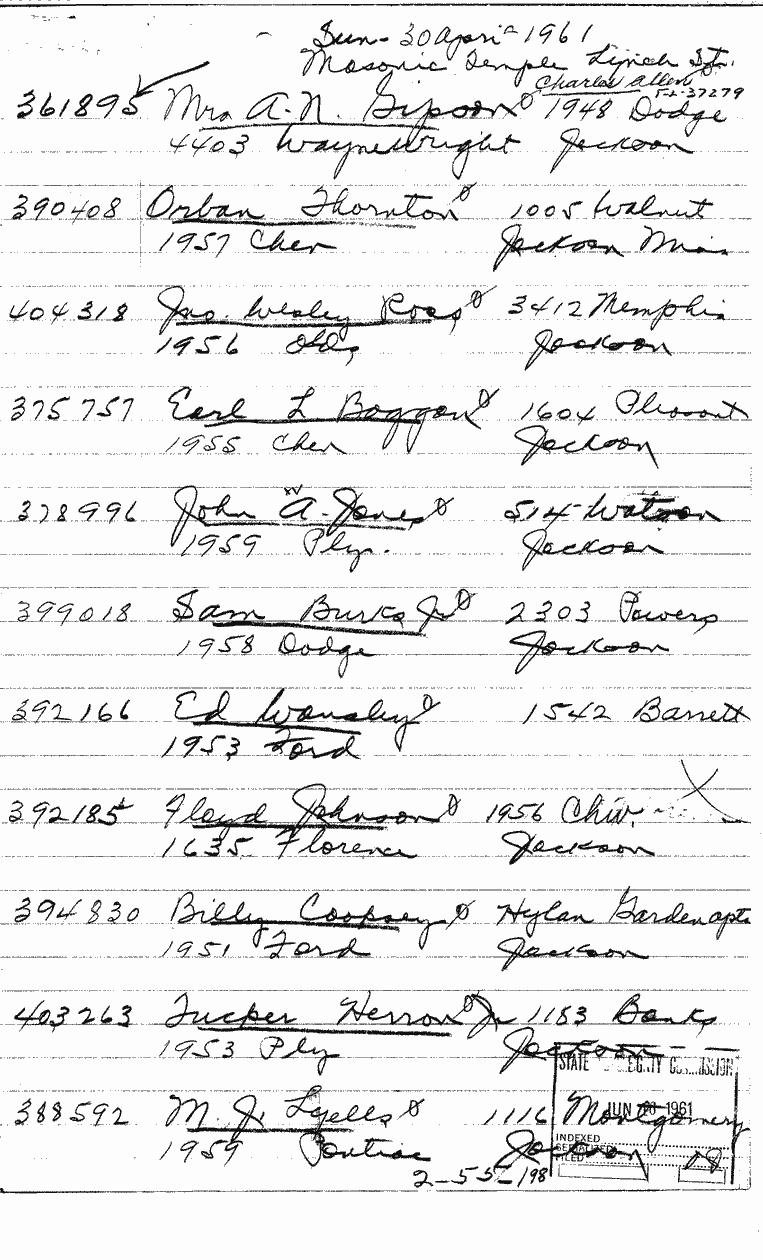 Sun- 30 April 1961
Masonic Temple Lynch St.
Charles Allen
52-37279
361895 Mrs A. N. Gipson 1948 Dodge
4403 Waynewright Jackson
390408 Orban Thornton 1005 Walnut
1957 Chev Jackson Miss
404318 Jno. Wesley Ross 3412 Memphis
1956 Olds Jackson
375757 Earl L Boggan 1604 Pleasant
1955 Chev Jackson
378996 John W A. Jones 514 Watson
1959 Ply. Jackson
399018 Sam Burks, Jr 2303 Powers
1958 Dodge Jackson
392166 Ed Wansley 1542 Barrett
1953 Ford
392185 Floyd Johnson 1956 Chev.
1635 Florence Jackson
394830 Billy Coopsey Hylan Garden apts
1951 Ford Jackson
403263 Tucper Herron Jr 1183 Banks
1953 Ply Jackson
STATE COMMISSION
388592 M. J. Lyells 1116 Montgomery
JUN 1961
1959 Pontiac Jackson
INDEXED
SERIALIZED
FILED
2-55-198